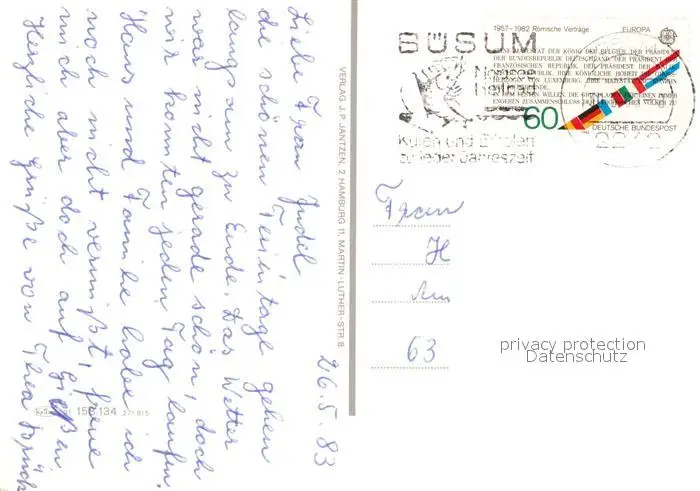 26.5.83
Liebe Frau Judel
die schönen Ferientage gehen
langsam zu Ende. Das Wetter
war nicht gerade schön, doch
wir konnten jeden Tag laufen.
Haus und Familie habe ich
noch nicht vermißt, freue
mich aber doch auf Gießen.
Herzliche Grüße von Thea
VERLAG J. P. JANTZEN, 2 HAMBURG 11, MARTIN-LUTHER-STR. 8
156 134
BÜSUM
Nordsee
Heilbad
Kuren und Erholen
zu jeder Jahreszeit
1957-1982 Römische Verträge EUROPA
SEINE MAJESTÄT DER KÖNIG DER BELGIER, DER PRÄSIDENT
DER BUNDESREPUBLIK DEUTSCHLAND, DER PRÄSIDENT DER
FRANZÖSISCHEN REPUBLIK, DER PRÄSIDENT DER
REPUBLIK, IHRE KÖNIGLICHE HOHEIT DIE
HERZOGIN VON LUXEMBURG, IHRE MAJESTÄT
IN DEM FESTEN WILLEN, DIE GRUNDLAGEN FÜR EINEN IMMER
ENGEREN ZUSAMMENSCHLUSS DER EUROPÄISCHEN VÖLKER ZU
60
DEUTSCHE BUNDESPOST
2242
Frau
H
63
privacy protection
Datenschutz